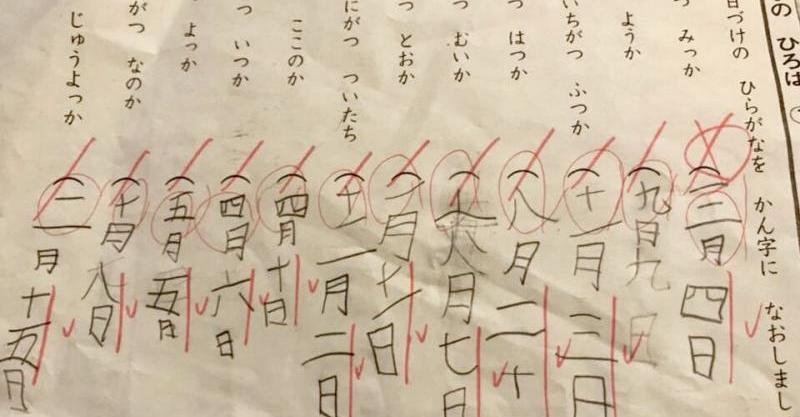 の ひろば
日づけの ひらがなを かん字に なおしまし
つ みっか (三月四日
ようか (九月九日
いちがつ ふつか (十一月三日
つ はつか (八月二十
つ むいか (八月七日
つ とおか (一月十一日
にがつ ついたち (十二月二日
ここのか (四月十日
つ いつか (四月六日
よっか (五月五日
がつ なのか (十月八日
じゅうよっか (二月十五日